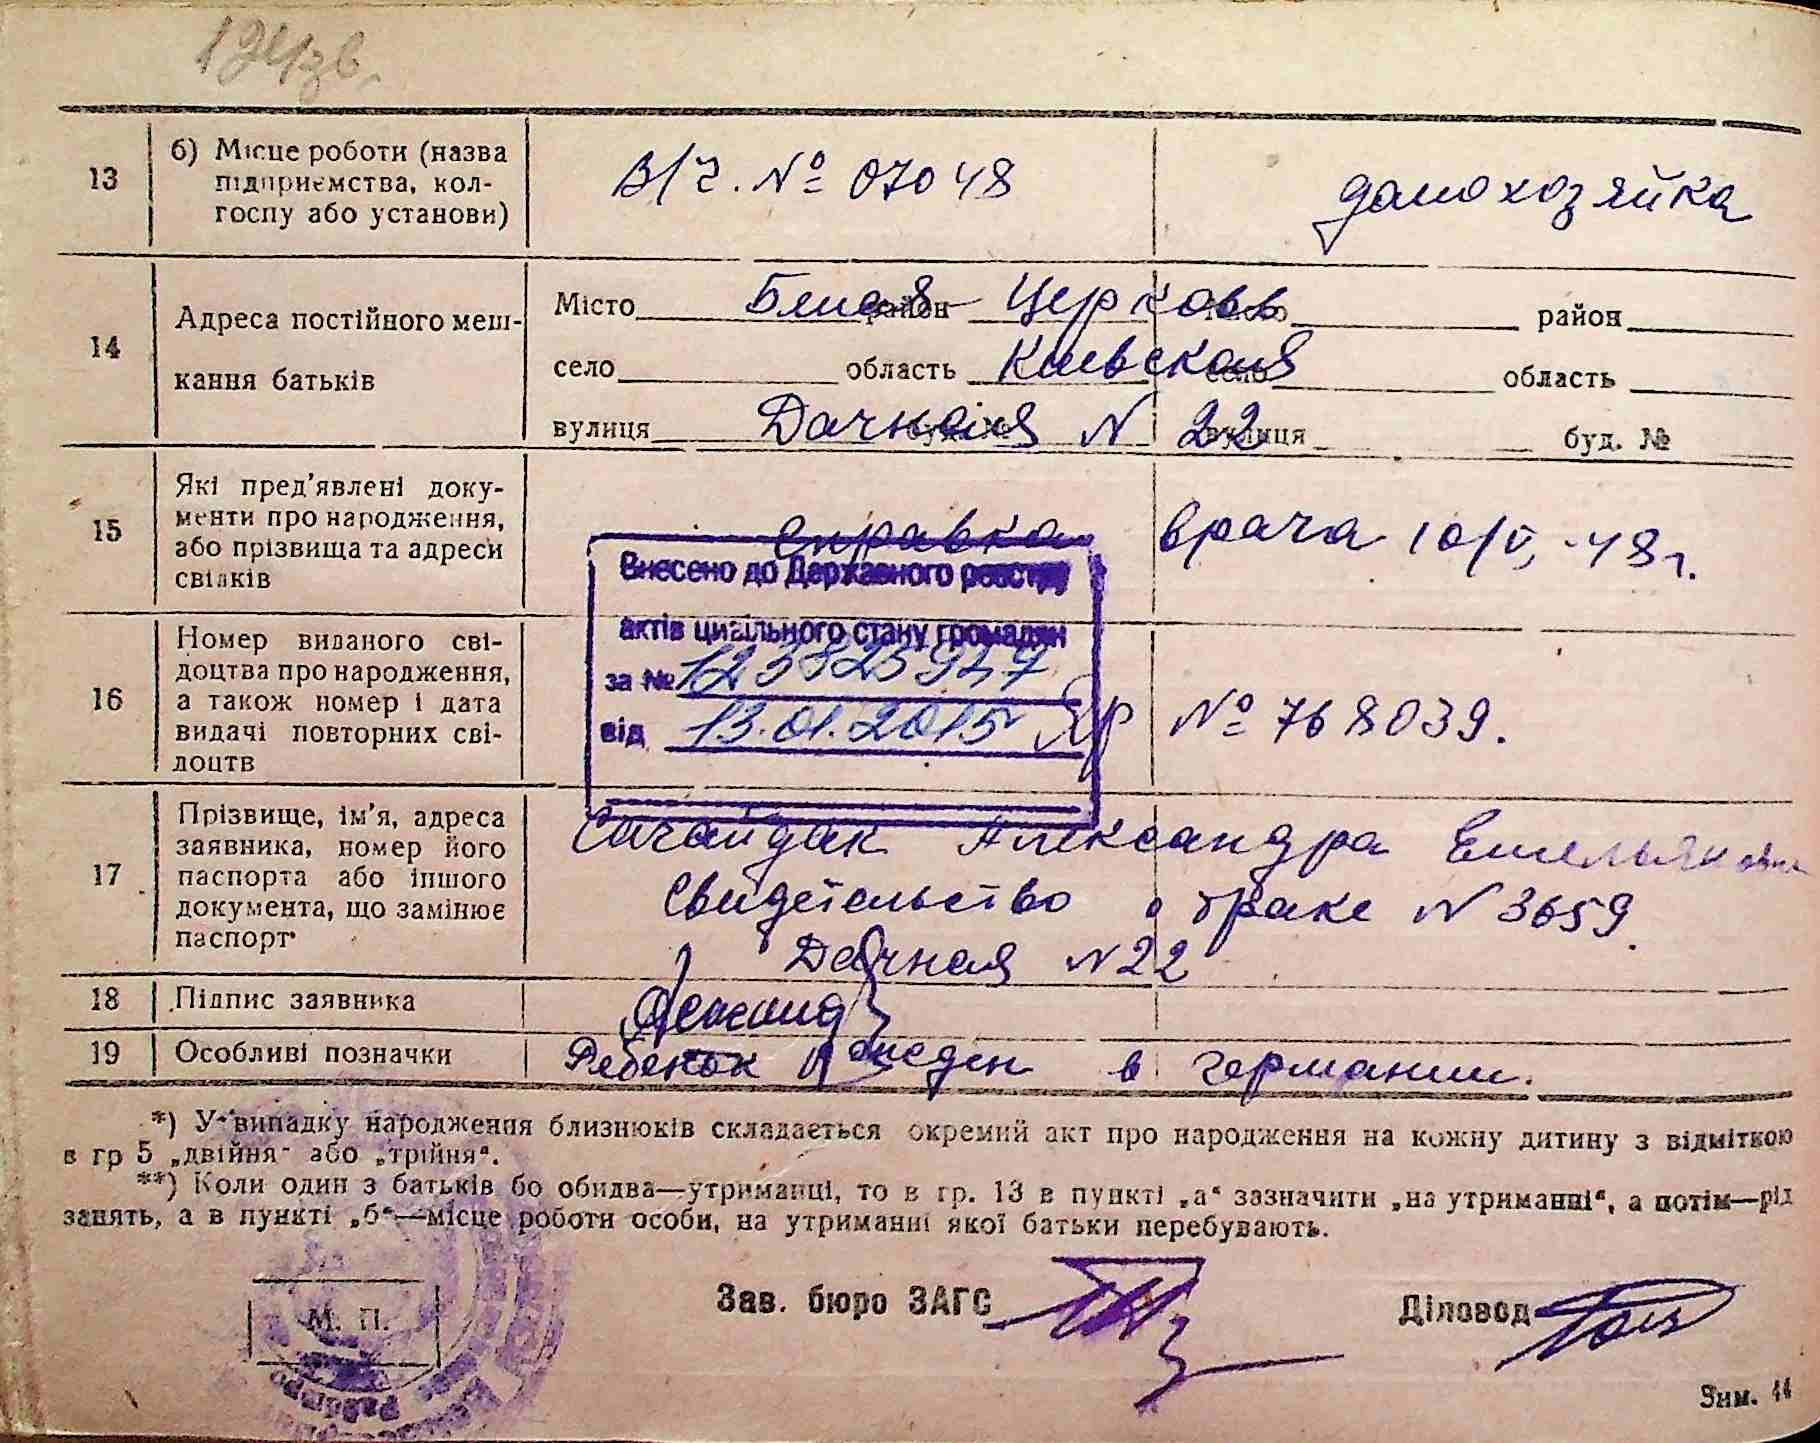 13 б) Місце роботи (назва
підприємства, кол-
госпу або установи)
В/ч. № 07048 домохозяйка
14 Адреса постійного меш-
кання батьків
Місто Белая район Церковь район
село область Киевская село область
вулиця Дачная N 22 вулиця буд. №
15 Які пред'явлені доку-
менти про народження,
або прізвища та адреси
свідків
справка врача 10/V-48 г.
Внесено до Державного реєстру
актів цивільного стану громадян
за №
від 13.01.2015
16 Номер виданого сві-
доцтва про народження,
а також номер і дата
видачі повторних сві-
доцтв
№ 768039.
17 Прізвище, ім'я, адреса
заявника, номер його
паспорта або іншого
документа, що замінює
паспорт
Александра Емельяновна
Свидетельство о браке N 3659.
Дачная N 22
18 Підпис заявника
19 Особливі позначки
Ребенок рожден в Германии.
*) У випадку народження близнюків складається окремий акт про народження на кожну дитину з відміткою
в гр 5 „двійня“ або „трійня“.
**) Коли один з батьків бо обидва—утриманці, то в гр. 13 в пункті „а“ зазначити „на утриманні“, а потім—рід
занять, а в пункті „б“—місце роботи особи, на утриманні якої батьки перебувають.
М. П.
Зав. бюро ЗАГС Діловод
Зим. 44